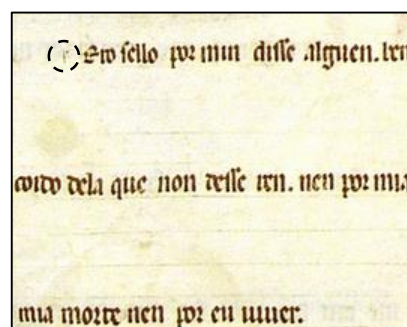 sello por min disse alguen.
cordo dela que non desse ren. nen por mia
mia morte nen por eu uiuer.